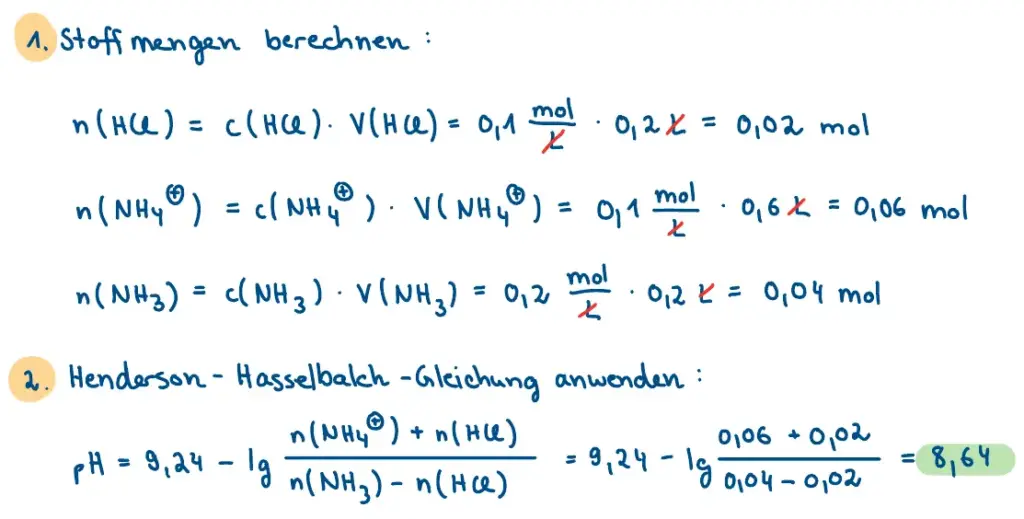 1. Stoffmengen berechnen :
n(HCl) = c(HCl) · V(HCl) = 0,1 mol/L · 0,2 L = 0,02 mol
n(NH₄⊕) = c(NH₄⊕) · V(NH₄⊕) = 0,1 mol/L · 0,6 L = 0,06 mol
n(NH₃) = c(NH₃) · V(NH₃) = 0,2 mol/L · 0,2 L = 0,04 mol
2. Henderson-Hasselbalch-Gleichung anwenden :
pH = 9,24 - lg (n(NH₄⊕) + n(HCl))/(n(NH₃) - n(HCl)) = 9,24 - lg (0,06 + 0,02)/(0,04 - 0,02) = 8,64